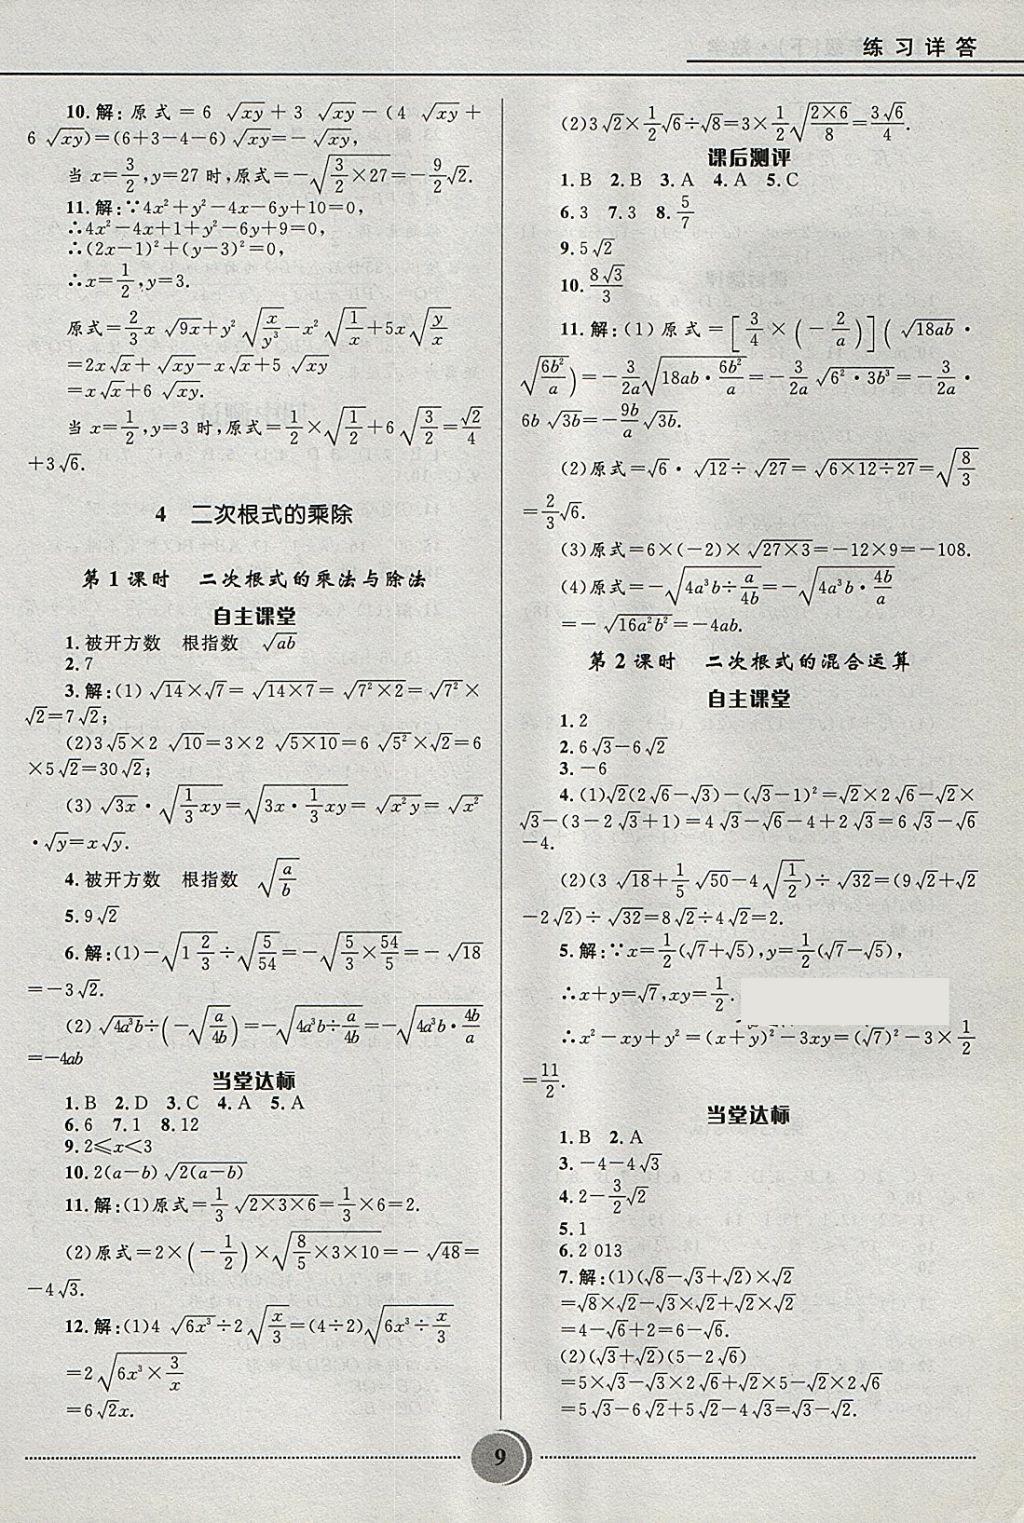 练习详答
10.解:原式=6√xy+3√xy-(4√xy+
6√xy)=(6+3-4-6)√xy=-√xy,
当x=3/2,y=27时,原式=-√(3/2×27)=-9/2√2.
11.解:∵4x²+y²-4x-6y+10=0,
∴4x²-4x+1+y²-6y+9=0,
∴(2x-1)²+(y-3)²=0,
∴x=1/2,y=3.
原式=2/3x√9x+y²√(x/y³)-x²√(1/x)+5x√(y/x)
=2x√x+√xy-x√x+5√xy
=x√x+6√xy.
当x=1/2,y=3时,原式=1/2×√(1/2)+6√(3/2)=√2/4
+3√6.
4 二次根式的乘除
第1课时 二次根式的乘法与除法
自主课堂
1.被开方数 根指数 √ab
2.7
3.解:(1)√14×√7=√(14×7)=√(7²×2)=√7²×
√2=7√2;
(2)3√5×2√10=3×2√(5×10)=6√5²×√2=6
×5√2=30√2;
(3)√3x·√(1/3xy)=√(3x·1/3xy)=√(x²y)=√x²
·√y=x√y.
4.被开方数 根指数 √(a/b)
5.9√2
6.解:(1)-√(1 2/3)÷√(5/54)=-√(5/3×54/5)=-√18
=-3√2.
(2)√(4a³b)÷(-√(a/4b))=-√(4a³b÷a/4b)=-√(4a³b·4b/a)
=-4ab
当堂达标
1.B 2.D 3.C 4.A 5.A
6.6 7.1 8.12
9.2≤x<3
10.2(a-b)√(2(a-b))
11.解:(1)原式=1/3√(2×3×6)=1/3×6=2.
(2)原式=2×(-1/2)×√(8/5×3×10)=-√48=
-4√3.
12.解:(1)4√(6x³)÷2√(x/3)=(4÷2)√(6x³÷x/3)
=2√(6x³×3/x)
=6√2x.
(2)3√2×1/2√6÷√8=3×1/2√(2×6/8)=3√6/4.
课后测评
1.B 2.B 3.A 4.A 5.C
6.3 7.3 8.5/7
9.5√2
10.8√3/3
11.解:(1)原式=[3/4×(-2/a)](√18ab·
√(6b²/a))=-3/2a√(18ab·6b²/a)=-3/2a√(6²·3b³)=-3/2a·
6b√3b=-9b/a√3b.
(2)原式=√6·√12÷√27=√(6×12÷27)=√(8/3)
=2/3√6.
(3)原式=6×(-2)×√(27×3)=-12×9=-108.
(4)原式=-√(4a³b÷a/4b)=-√(4a³b·4b/a)
=-√(16a²b²)=-4ab.
第2课时 二次根式的混合运算
自主课堂
1.2
2.6√3-6√2
3.-6
4.(1)√2(2√6-√3)-(√3-1)²=√2×2√6-√2×
√3-(3-2√3+1)=4√3-√6-4+2√3=6√3-√6
-4.
(2)(3√18+1/5√50-4√(1/2))÷√32=(9√2+√2
-2√2)÷√32=8√2÷4√2=2.
5.解:∵x=1/2(√7+√5),y=1/2(√7-√5),
∴x+y=√7,xy=1/2.
∴x²-xy+y²=(x+y)²-3xy=(√7)²-3×1/2
=11/2.
当堂达标
1.B 2.A
3.-4-4√3
4.2-3/2√2
5.1
6.2 013
7.解:(1)(√8-√3+√2)×√2
=√8×√2-√3×√2+√2×√2
=4-√6+2=6-√6.
(2)(√3+√2)(5-2√6)
=5×√3-√3×2√6+√2×5-√2×2√6
=5√3-6√2+5√2-4√3=√3-√2.
9